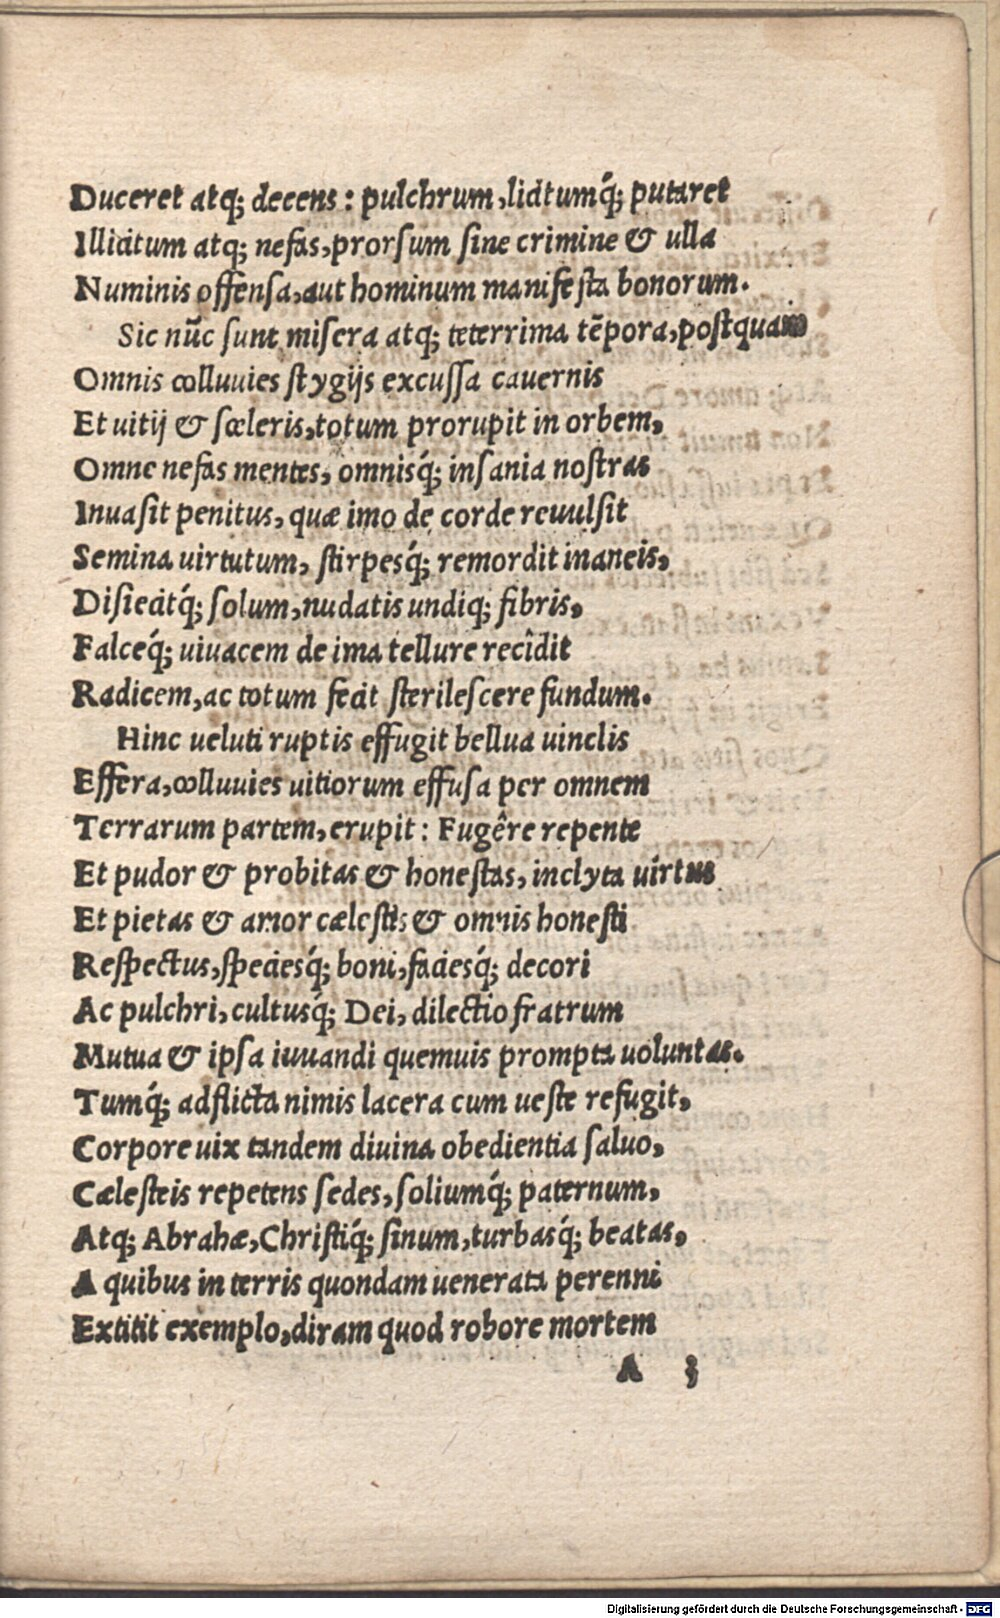 Duceret atq; decens: pulchrum, licitumq́; putaret
Illicitum atq; nefas, prorſum ſine crimine & ulla
Numinis offenſa, aut hominum manifeſta bonorum.
Sic nūc ſunt miſera atq; teterrima tēpora, poſtquam
Omnis colluuies ſtygijs excuſſa cauernis
Et uitij & ſceleris, totum prorupit in orbem,
Omne nefas mentes, omnisq́; inſania noſtras
Inuaſit penitus, quæ imo de corde reuulſit
Semina uirtutum, ſtirpesq́; remordit inaneis,
Diſiecitq́; ſolum, nudatis undiq; fibris,
Falceq́; uiuacem de ima tellure recîdit
Radicem, ac totum fecit ſterileſcere fundum.
Hinc ueluti ruptis effugit bellua uinclis
Effera, colluuies uitiorum effuſa per omnem
Terrarum partem, erupit: Fugêre repente
Et pudor & probitas & honeſtas, inclyta uirtus
Et pietas & amor cæleſtis & omnis honeſti
Reſpectus, ſpeciesq́; boni, faciesq́; decori
Ac pulchri, cultusq́; Dei, dilectio fratrum
Mutua & ipſa iuuandi quemuis prompta uoluntas.
Tumq́; adflicta nimis lacera cum ueſte refugit,
Corpore uix tandem diuina obedientia ſaluo,
Cæleſteis repetens ſedes, ſoliumq́; paternum,
Atq; Abrahæ, Chriſtiq́; ſinum, turbasq́; beatas,
A quibus in terris quondam uenerata perenni
Extitit exemplo, diram quod robore mortem
A 3
Digitalisierung gefördert durch die Deutsche Forschungsgemeinschaft - DFG